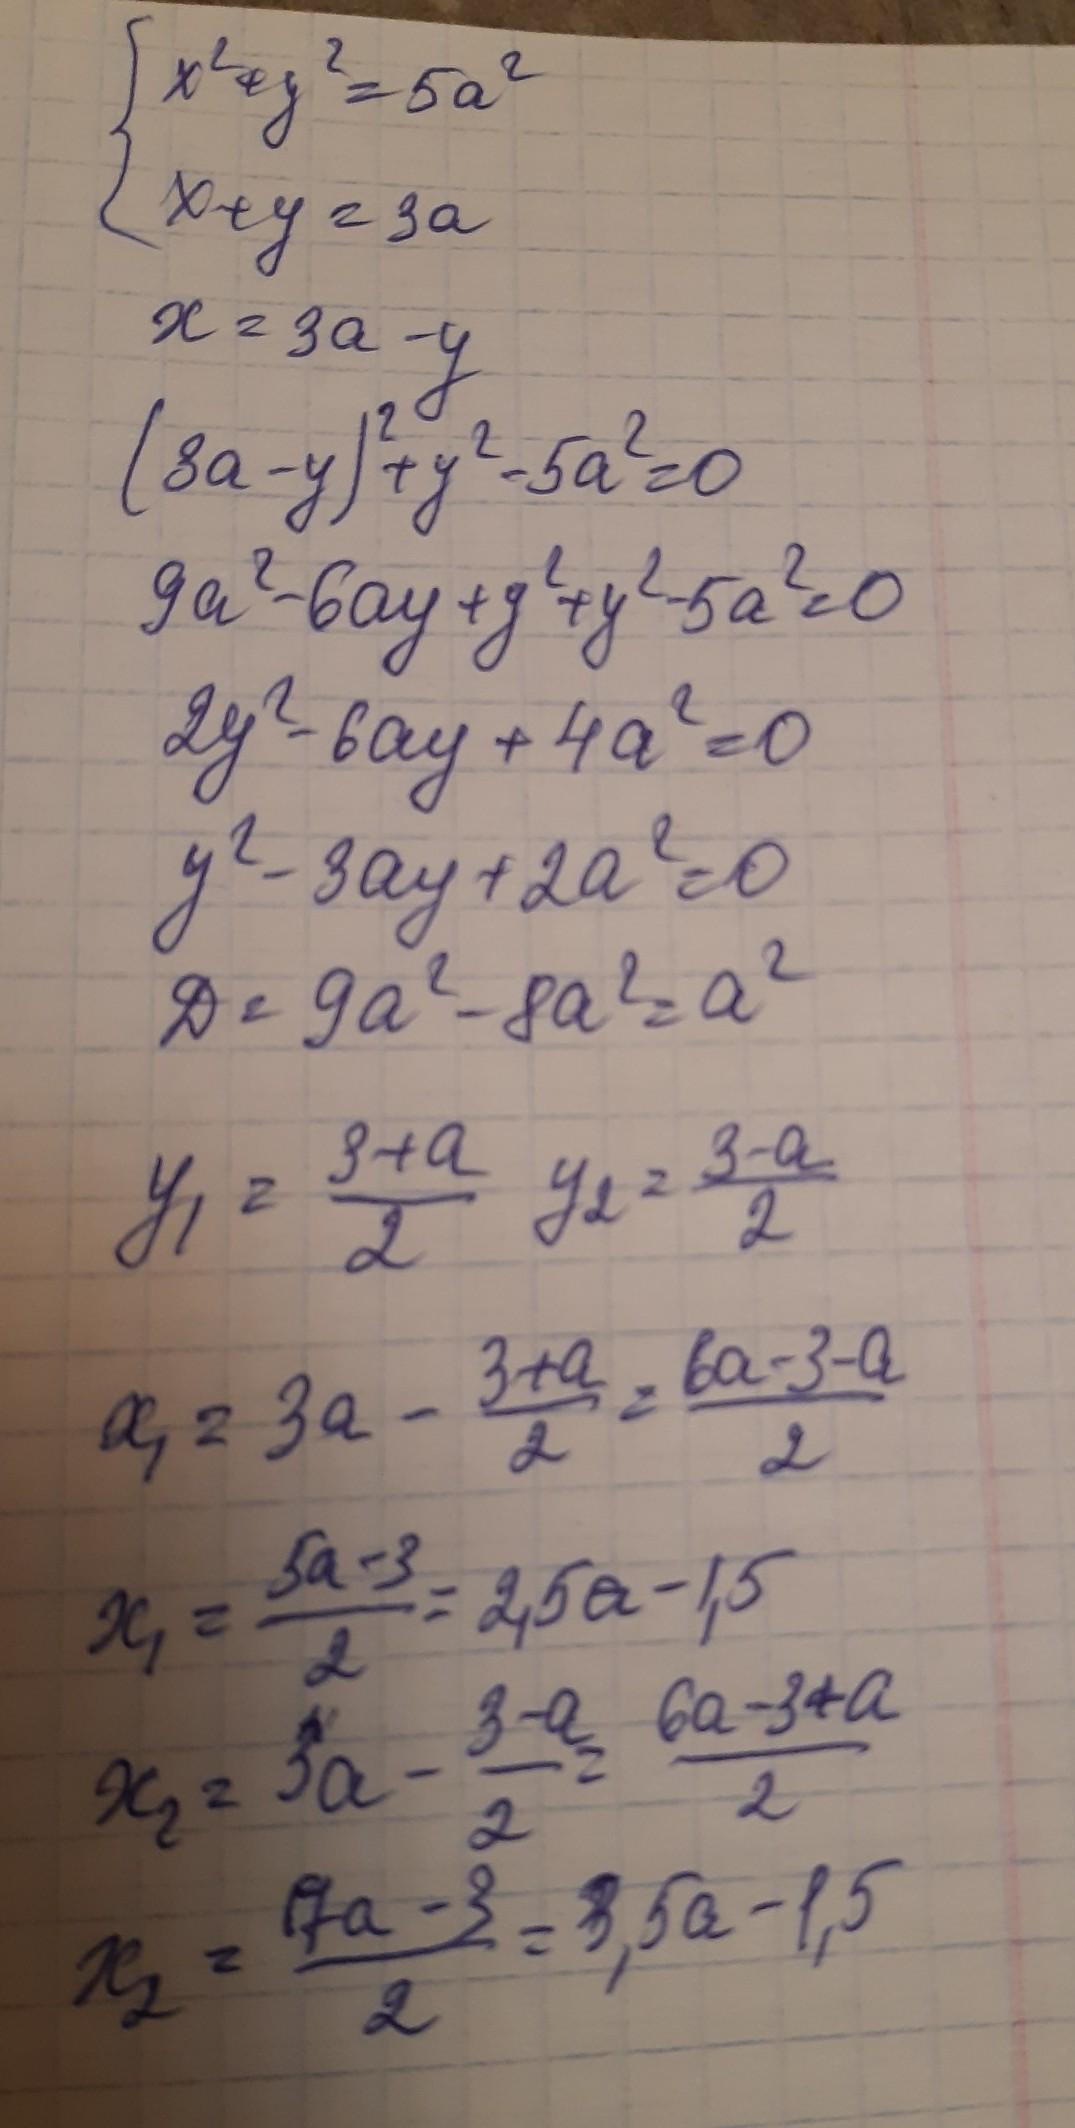 { x² + y² = 5a²
x + y = 3a
x = 3a - y
(3a - y)² + y² - 5a² = 0
9a² - 6ay + y² + y² - 5a² = 0
2y² - 6ay + 4a² = 0
y² - 3ay + 2a² = 0
D = 9a² - 8a² = a²
y₁ = (3+a)/2 y₂ = (3-a)/2
x₁ = 3a - (3+a)/2 = (6a-3-a)/2
x₁ = (5a-3)/2 = 2,5a - 1,5
x₂ = 3a - (3-a)/2 = (6a-3+a)/2
x₂ = (7a-3)/2 = 3,5a - 1,5